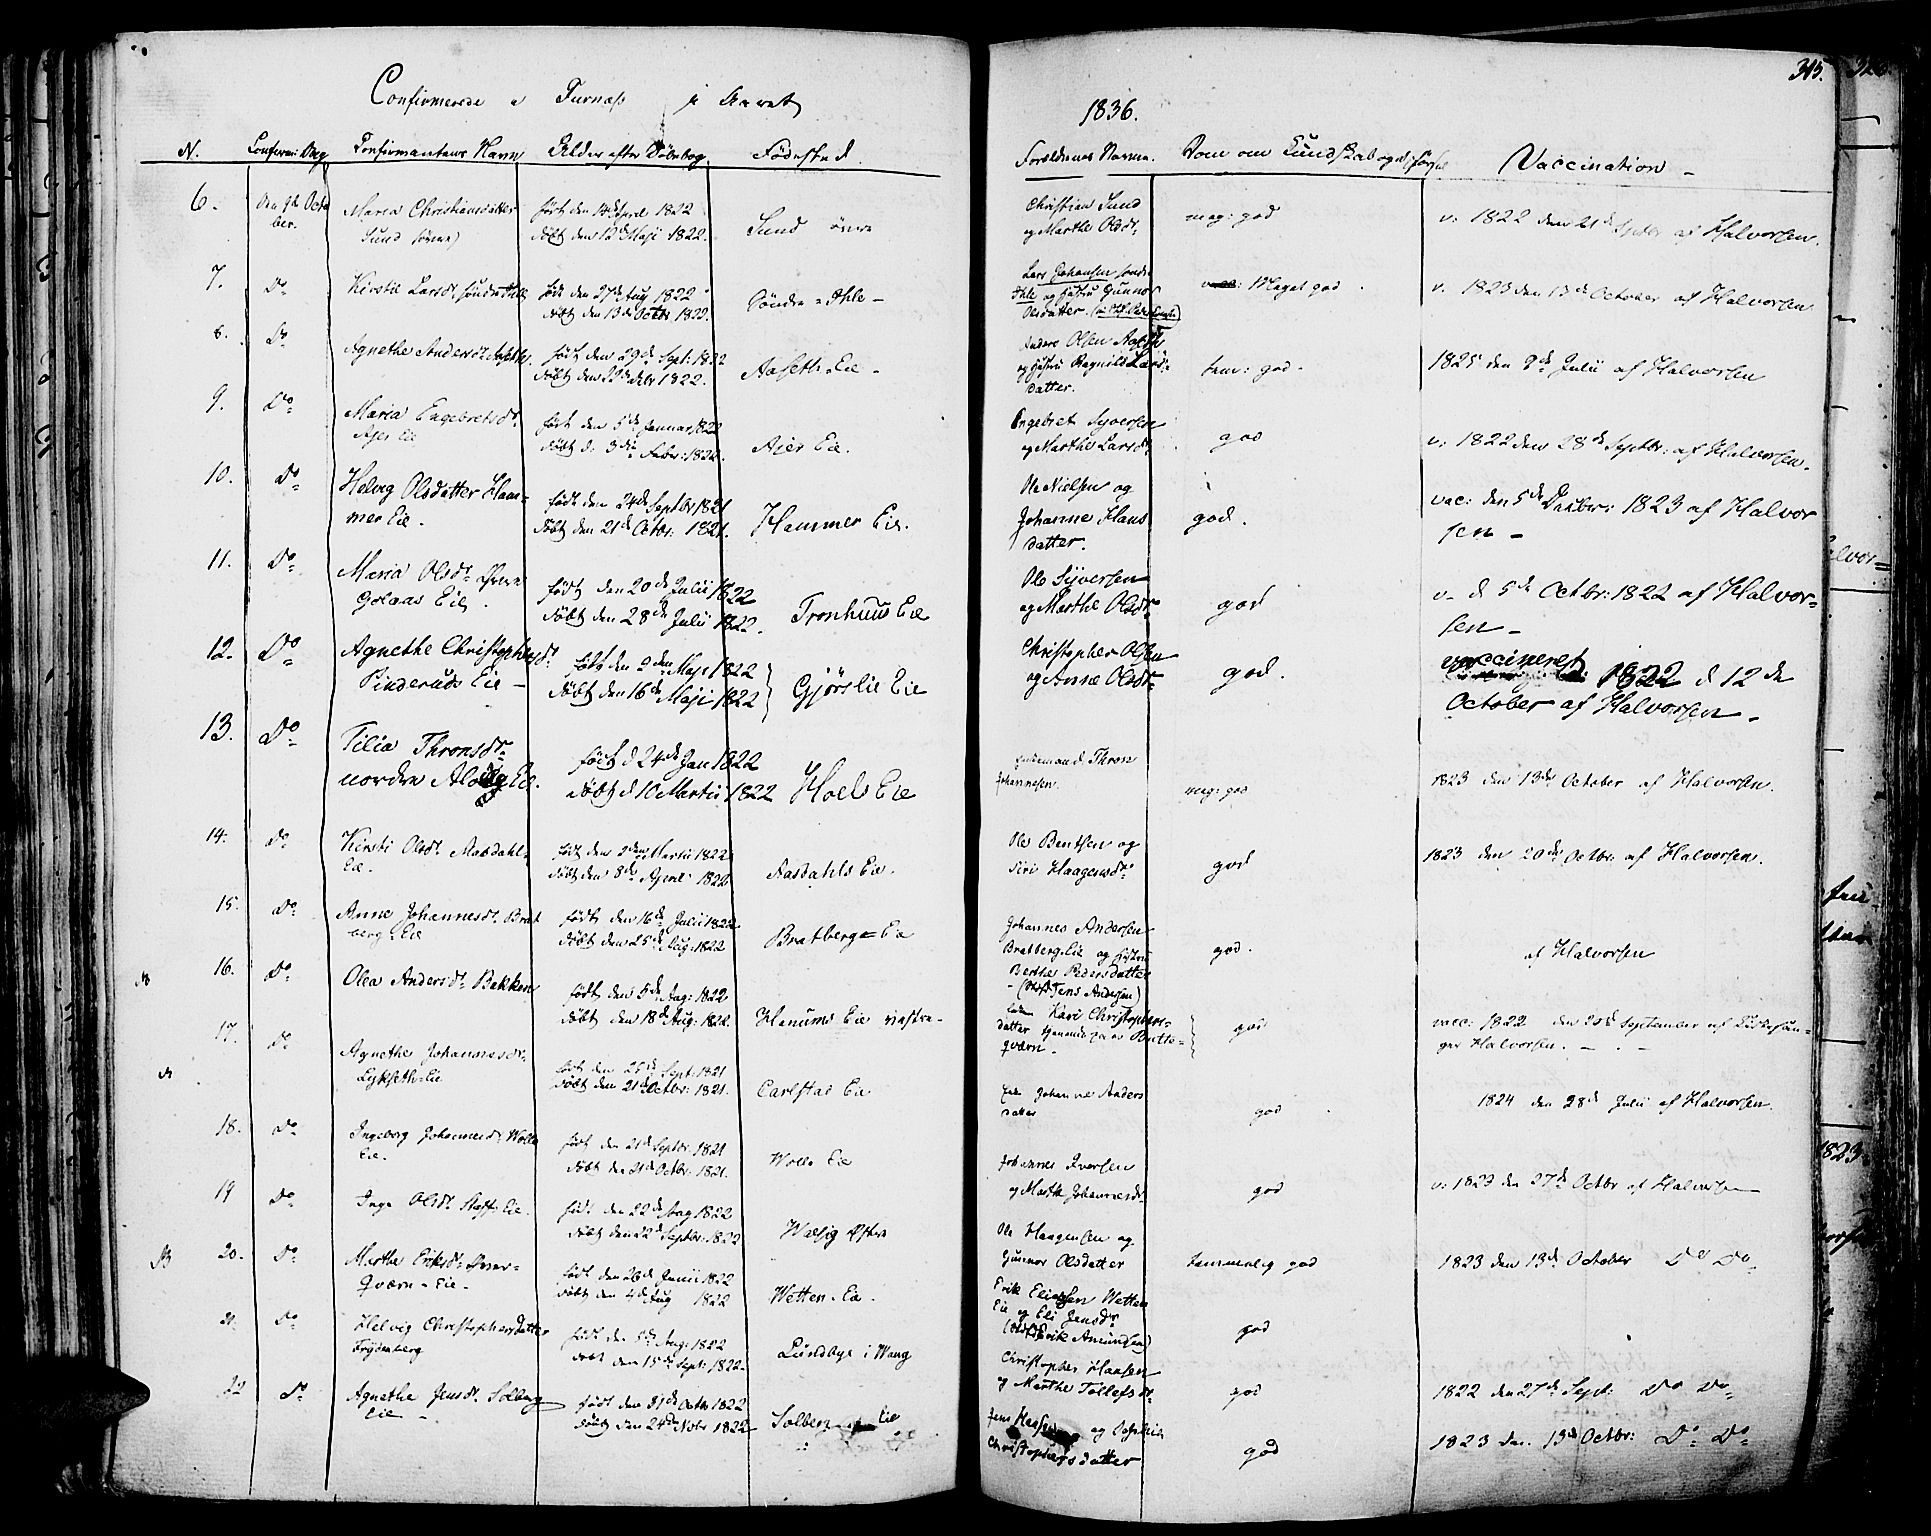 Confirmerede i Furnæss i Aaret
1836.
315.
N. Confirm: Dag Confirmantens Navn Alder efter Døbebog Fødested.
Forældrenes Navne. Dom om Kundskab og
Vaccination
6. Den 9de Octo
ber.
Maria Christiansdatter
Sund
født den 14de April 1822
døbt den 12te Maji 1822.
Sund
Christian Sund
og Marthe Olsdr
meg: god
v: 1822 den 21de Septbr af Halvorsen.
7. Do
Kirstie Larsdr søndre Ihle
født den 27de Aug 1822
døbt den 13de Octbr 1822.
Søndre-Ihle-
Lars Johansen søndre
Ihle og Hustru Gunnor
Olsdatter.
Meget god
v. 1823 den 13de October af Halvorsen
8. Do
Agnethe Andersdr Aaseth
født den 29de Sept: 1822
døbt den 1822.
Aaseth-Eie-
Anders Olsen Aaseth
og Hustru Ragnild Lars-
datter.
tem: god-
1825 den 9de Julii af Halvorsen
9. Do
Maria Engebretsdr
Ajer Eie
født den 5te Januar 1822
døbt d: 3die Febr: 1822.
Ajer Eie.
Engebret Syversen
og Marthe Larsdr
god
v: 1822 den 28de Septbr: af Halvorsen.
10. Do
Helvig Olsdatter Ham-
mer Eie.
født den 24de Septbr 1821
døbt den 21de Octbr: 1821.
Hammer Eie.
Ole Nielsen og
Johanne Hans
datter.
god.
vac: den 5te Decbr: 1823 af Halvor
sen-
11. Do
Maria Olsdr Øvre
Golaas Eie.
født den 20de Julii 1822
døbt den 28de Julii 1822.
Tronhuus Eie
Ole Syversen
og Marthe Olsdr
god
v- d 5te Octbr: 1822 af Halvor-
sen-
12. Do
Agnethe Christophersdr
Pinderuds Eie-
født den 9den Maji 1822
døbt den 16de Maji 1822
Gjørslie Eie
Christopher Olsen
og Anne Olsdr
god.
vaccineret 1822 d 12de
October af Halvorsen-
13. Do
Tilia Thronsdr
nordre Eie.
født d 24de Jan 1822
døbt d 10 Martii 1822
Hoels Eie
Thron
Johannesen
meg: god
1823 den 13de October af Halvorsen.
14. Do
Kirsti Olsdr Aasdahl-
Eie.
født den 2den Martii 1822
døbt den 8de April 1822
Aasdahls Eie.
Ole Bentsen og
Siri Haagensdr
god
1823 den 20de Octbr: af Halvorsen.
15. Do
Anne Johannesdr Brat
berg-Eie
født den 16de Julii 1822
døbt den 25de Aug: 1822
Bratberg-Eie
Johannes Andersen
Bratberg-Eie og Hustru
Berthe Pedersdatter
god.
af Halvorsen
16. Do
Olea Andersdr Bakken
født den 5te Aug: 1822
døbt den 18de Aug: 1822.
Hanums Eie
(Jens Andersen)
Kari Christophers-
datter tjenende
qværn-
god
vacc: 1822 den September af
ger Halvorsen.
17. Do
Agnethe Johannesdr
Lykseth-Eie
født den 25de Sept: 1821
døbt den 21de Octbr: 1821.
Carlstad Eie
Johanne Anders
datter
god
1824 den 28de Julii af Halvorsen.
18. Do
Ingeborg Johannesdr Wolle
Eie.
født den 21de Septbr: 1821
døbt den 21de Octbr: 1821.
Wolle Eie
Johannes Iversen
og Marthe Johannesdr
god
v: 1823 den 27de Octbr af Halvorsen
19 Do
Inga Olsdr Staff-Eie.
født den 22de Aug 1822
døbt den 22de Septbr: 1822
Walsig Østre
Ole Haagensen og
Gunnor Olsdatter
temmelig god
1823 den 13de October Do Do
20. Do
Marthe Eriksdr
Qværn-Eie-
født den 26de Junii 1822
døbt den 4de Aug 1822
Wetten-Eie.
Erik Eliassen Wetten
Eie og Eli Jensdr
(Erik Amundsen)
god
21. Do
Helvig Christophersdatter
Frydenberg
født den 5te Aug: 1822
døbt den 15de Sept: 1822.
Lundbye i Wang
Christopher Hansen
og Marthe Tollefsdr
god
1822 den 27de Sept: Do Do
22 Do
Agnethe Jensdr Solberg
Eie-
født den 31de Octbr 1822
døbt den 24de Novbr 1822
Solberg Eie
Jens og
Christophersdatter
god
1823 den 13de Octbr: Do Do